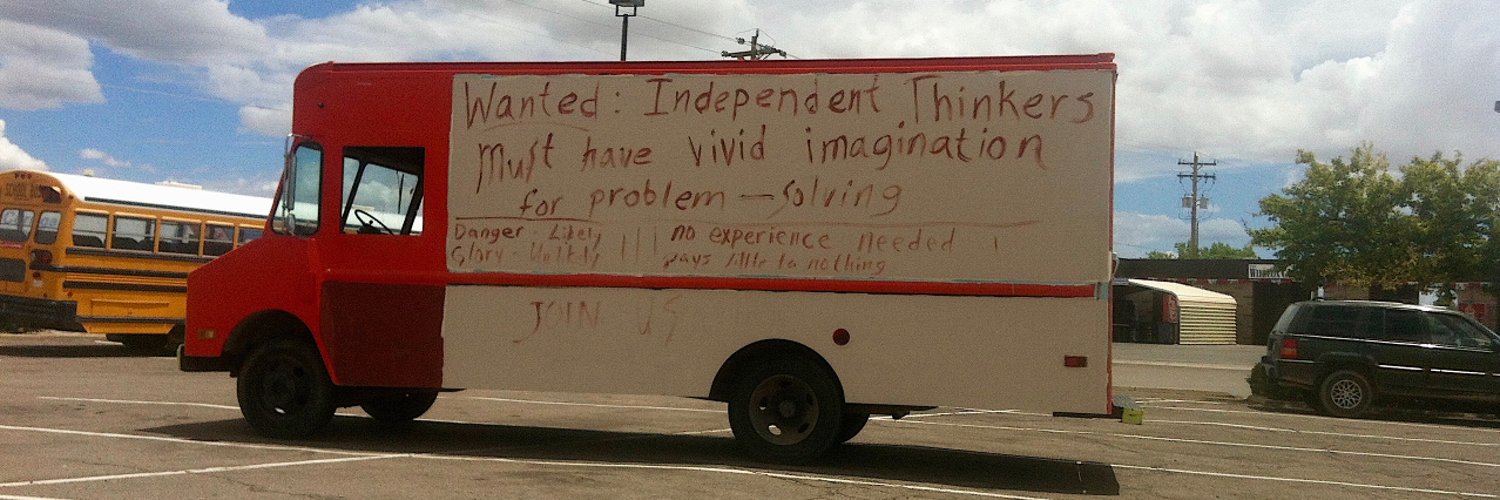 SCHOOL BUS
Wanted: Independent Thinkers
Must have vivid imagination
for problem-solving
Danger - Likely
Glory - Unlikely
no experience needed
pays little to nothing
JOIN US